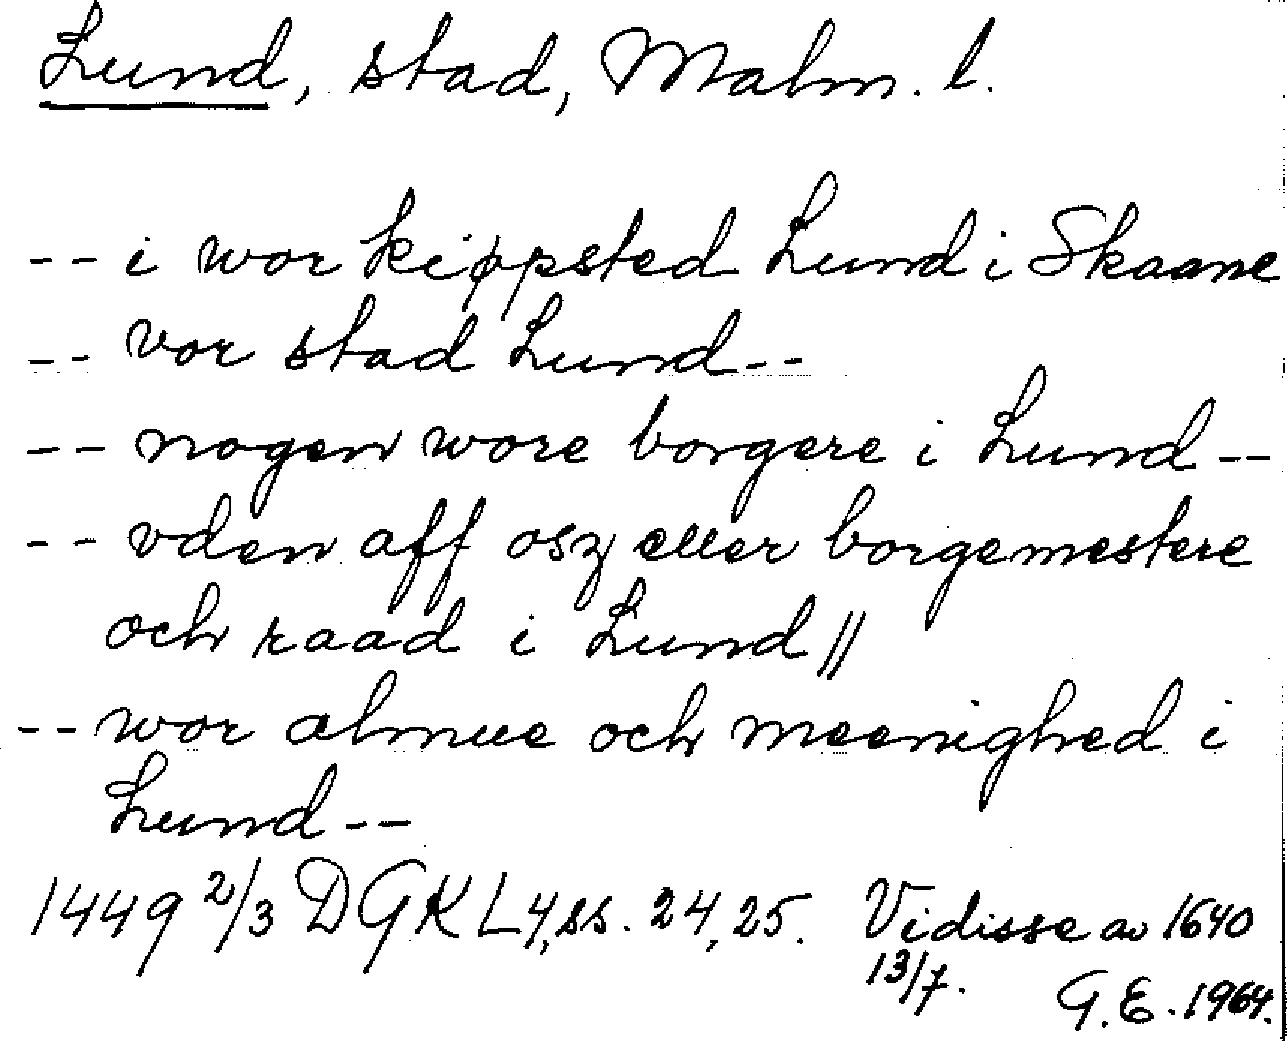 Lund, stad, Malm. l.
-- i wor kiøpsted Lund i Skaane
-- vor stad Lund --
-- nogen wore borgere i Lund --
-- vden aff osz eller borgemestere
och raad i Lund //
-- wor almue och meenighed i
Lund --
1449 2/3 DGKL 4, ss. 24, 25. Vidisse av 1640
13/7.
G.E. 1964.